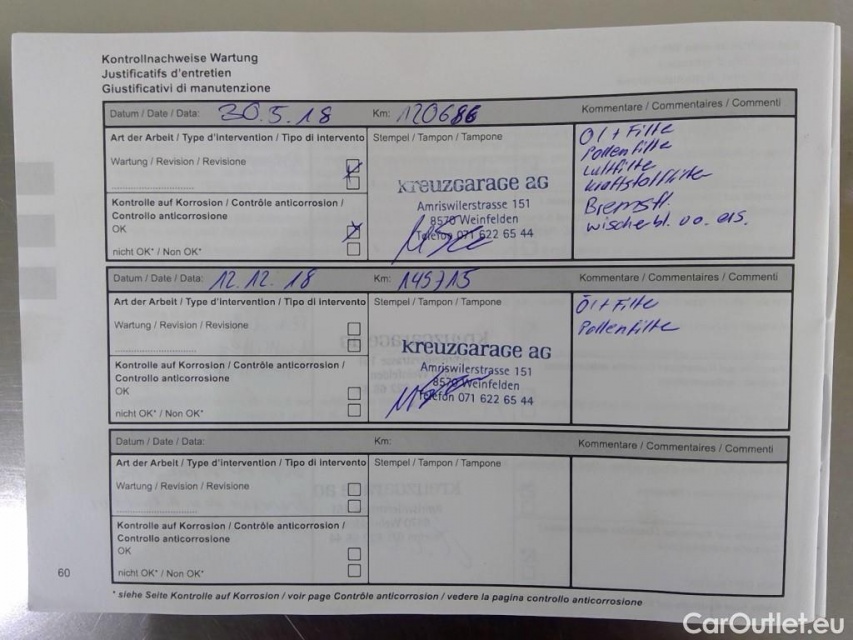 Kontrollnachweise Wartung
Justificatifs d'entretien
Giustificativi di manutenzione
Datum / Date / Data: 30.5.18 Km: 120686 Kommentare / Commentaires / Commenti
Art der Arbeit / Type d'intervention / Tipo di intervento Stempel / Tampon / Tampone
Wartung / Revision / Revisione
Kontrolle auf Korrosion / Contrôle anticorrosion /
Controllo anticorrosione
OK
nicht OK* / Non OK*
kreuzgarage ag
Amriswilerstrasse 151
8570 Weinfelden
Telefon 071 622 65 44
Öl + Filte
Pollenfilte
Luftfilte
Kraftstoffilte
Bremsfl.
wischerbl. vo. ers.
Datum / Date / Data: 12.12.18 Km: 145715 Kommentare / Commentaires / Commenti
Art der Arbeit / Type d'intervention / Tipo di intervento Stempel / Tampon / Tampone
Wartung / Revision / Revisione
Kontrolle auf Korrosion / Contrôle anticorrosion /
Controllo anticorrosione
OK
nicht OK* / Non OK*
kreuzgarage ag
Amriswilerstrasse 151
8570 Weinfelden
Telefon 071 622 65 44
Öl + Filte
Pollenfilte
Datum / Date / Data: Km: Kommentare / Commentaires / Commenti
Art der Arbeit / Type d'intervention / Tipo di intervento Stempel / Tampon / Tampone
Wartung / Revision / Revisione
Kontrolle auf Korrosion / Contrôle anticorrosion /
Controllo anticorrosione
OK
nicht OK* / Non OK*
60
* siehe Seite Kontrolle auf Korrosion / voir page Contrôle anticorrosion / vedere la pagina controllo anticorrosione
CarOutlet.eu